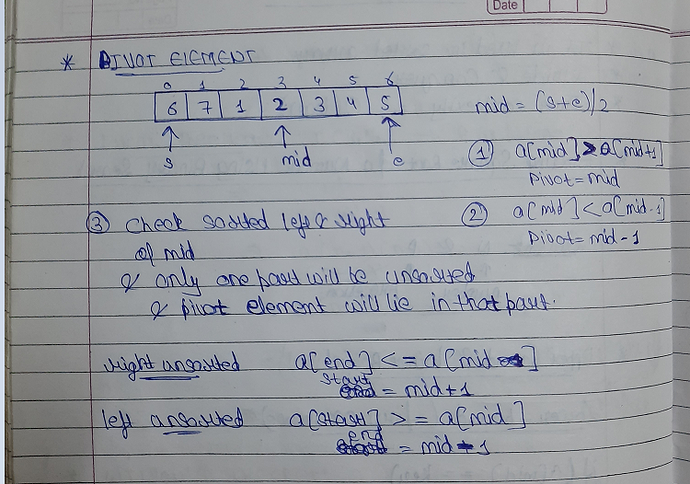 Date
* PIVOT ELEMENT
0 1 2 3 4 5 6
6 7 1 2 3 4 5
mid = (s+e)/2
s mid e
① a[mid] > a[mid+1]
Pivot = mid
② a[mid] < a[mid-1]
Pivot = mid - 1
③ check sorted left & right
of mid
& only one part will be unsorted
& pivot element will lie in that part.
right unsorted a[end] <= a[mid]
start = mid+1
left unsorted a[start] >= a[mid]
end = mid - 1